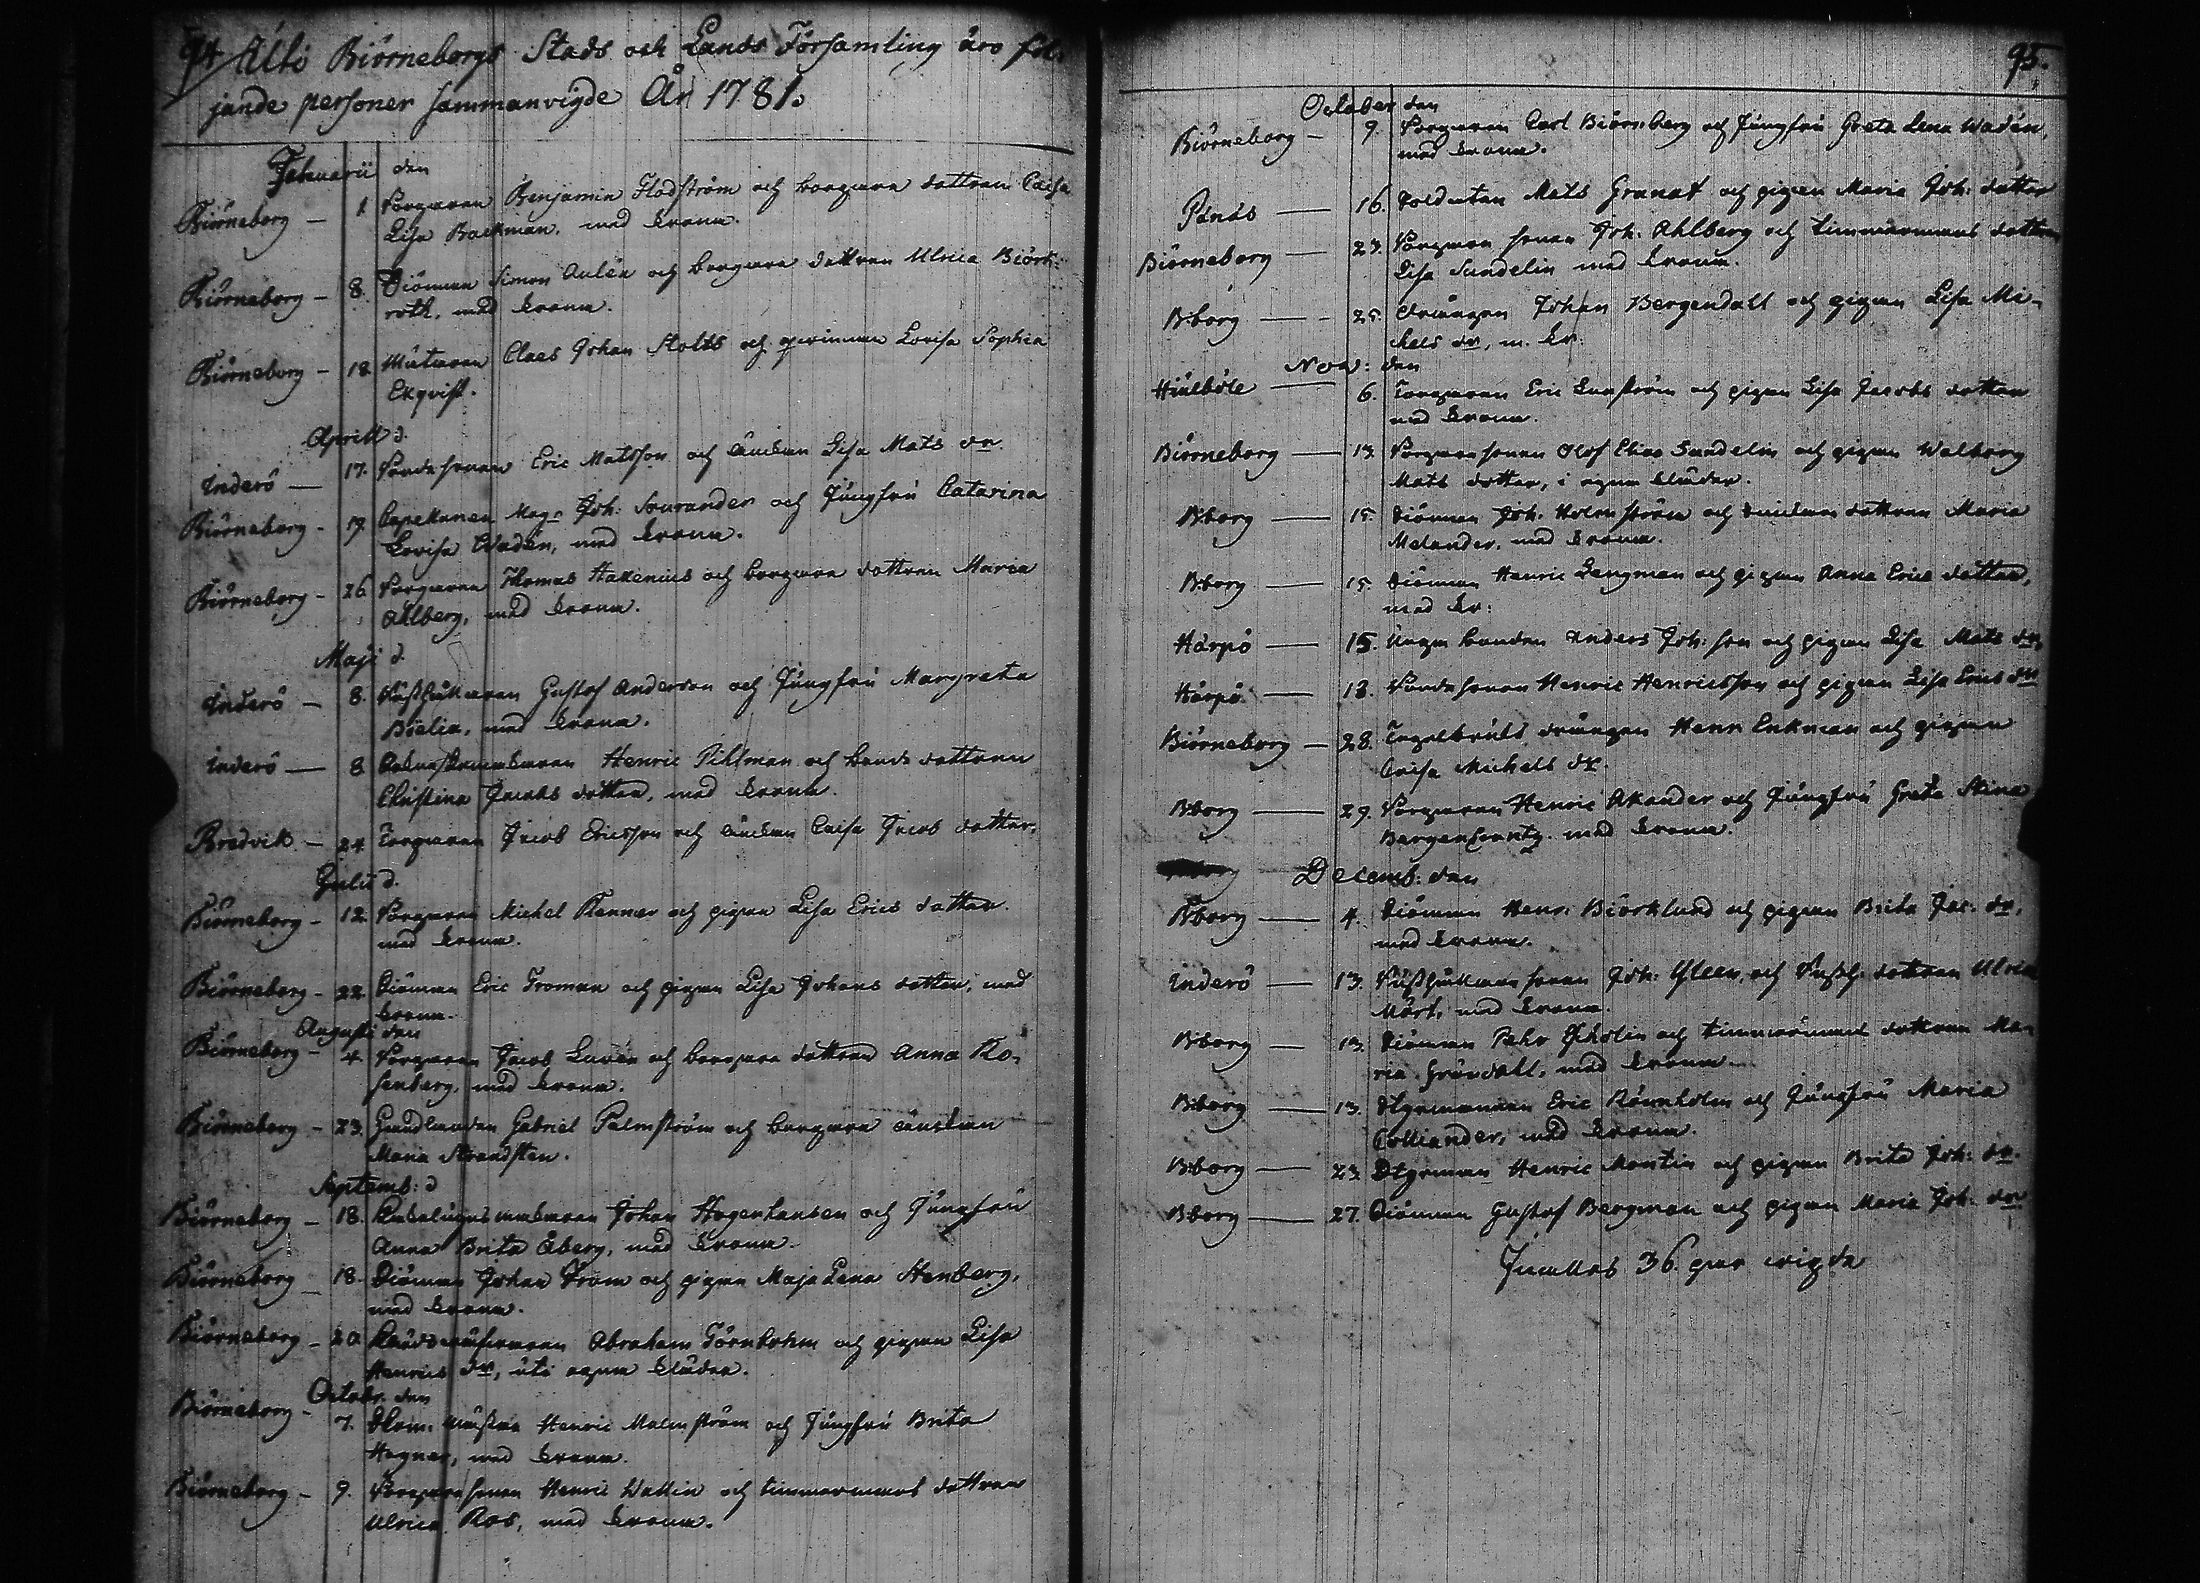 94 Uti Biörneborgs Stads och Lands Församling äro föl-
jande personer sammanvigde År 1781.
Januarii den
Biörneborg - 1 Borgaren Benjamin Flodström och borgare dottren Caisa
Lisa Backman, med krona.
Biörneborg - 8. Siöman Simon Aulén och borgare dottren Ulrica Biörk-
roth, med krona.
Biörneborg - 18 Claes Johan Stolts och Lovisa Sophia
Ekqvist.
Aprill d.
Inderö - 17. Bondesonen Eric Matsson och änckan Lisa Mats dr.
Biörneborg - 19. Capellanen Mag: Joh: Sourander och Jungfru Catarina
Lovisa Wadén, med krona.
Biörneborg - 26 Borgaren Thomas Hakenius och borgare dottren Maria
Ahlberg, med krona.
Maji d.
Inderö - 8. Gustof Anderson och Jungfru Margreta
med krona.
Inderö - 8. Henric Pihlman och bonde dottren
Christina Jacobs dotter, med krona.
Bredvik - 24 Torparen Jacob Ericsson och änckan Caisa Jacob dotter.
Julii d.
Biörneborg - 12. Borgaren Michel Renner och pigan Lisa Erics dotter.
med krona.
Biörneborg - 22. Siöman Eric Froman och pigan Lisa Johans dotter, med
krona.
Augusti den
Biörneborg - 4. Borgaren Jacob Lurén och borgare dottren Anna Ro-
senberg, med krona.
Biörneborg - 23. Gabriel Palmström och borgare änckan
Maria Strandsten.
Septemb: d
Biörneborg - 18. Johan Hagenhausen och Jungfru
Anna Brita Åberg, med krona.
Biörneborg - 18. Siöman Johan From och pigan Maja Lena Stenberg,
med krona.
Biörneborg - 20. Abraham Törnbohm och pigan Lisa
Henrics dr, uti egna kläder.
Octobr. den
Biörneborg - 7. Henric Malmström och Jungfru Brita
Hegner, med krona.
Biörneborg - 9. Borgare sonen Henric Wallin och timmermans dottren
Ulrica Ros, med krona.
95.
October den
Biörneborg - 9. Borgaren Carl Biörnberg och Jungfru Greta Lena Wadén,
med krona.
Pänäs - 16. Soldaten Mats Granat och pigan Maria Joh: dotter
Biörneborg - 23. Borgare sonen Joh: Ahlberg och timmermans dottren
Lisa Sundelin med krona.
B:borg - 25. Drängen Johan Bergendahl och pigan Lisa Mi-
chels dr, m. kr.
Nov: den
Hiulböle - 6. Torparen Eric Lagström och pigan Lisa Jacobs dotter
med krona.
Biörneborg - 13. Borgare sonen Olof Elias Sundelin och pigan Walborg
Mats dotter, i egna kläder.
B:borg - 15. Siöman Joh: Holmström och dottren Maria
Melander, med krona.
B:borg - 15. Siöman Henric Lengman och pigan Anna Erics dotter,
med kr:
Härpö - 15. Unga bonden Anders Joh: son och pigan Lisa Mats dr,
Härpö - 18. Bonde sonen Henric Henricsson och pigan Lisa Erics dr
Biörneborg - 28. Tegelbruks drängen Henr: Enkman och pigan
Caisa Michels dr.
B:borg - 29. Borgaren Henric Akander och Jungfru Greta Stina
med krona.
Decemb: den
B:borg - 4. Siöman Henr: Biörklund och pigan Brita Jac: dr,
med krona.
Inderö - 13. sonen Joh: och dottren Ulrica
Mört, med krona.
B:borg - 13. Siöman Pehr Ekholin och timmermans dottren Ma-
ria Gröndahl, med krona.
B:borg - 13. Styrmannen Eric Rönnholm och Jungfru Maria
Colliander, med krona.
B:borg - 23. Styrman Henric Montin och pigan Brita Joh: dr.
B:borg - 27. Siöman Gustof Bergman och pigan Maria Joh: dr
36. par vigde